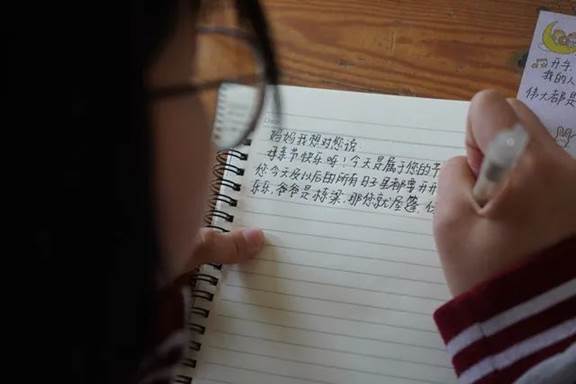 妈妈我想对您说
母亲节快乐呀！今天是属于您的节
您今天及以后的所有日子里都要开开
乐乐,爸爸是栋梁,那您就屋檐,
开午
我的人
伟大都是